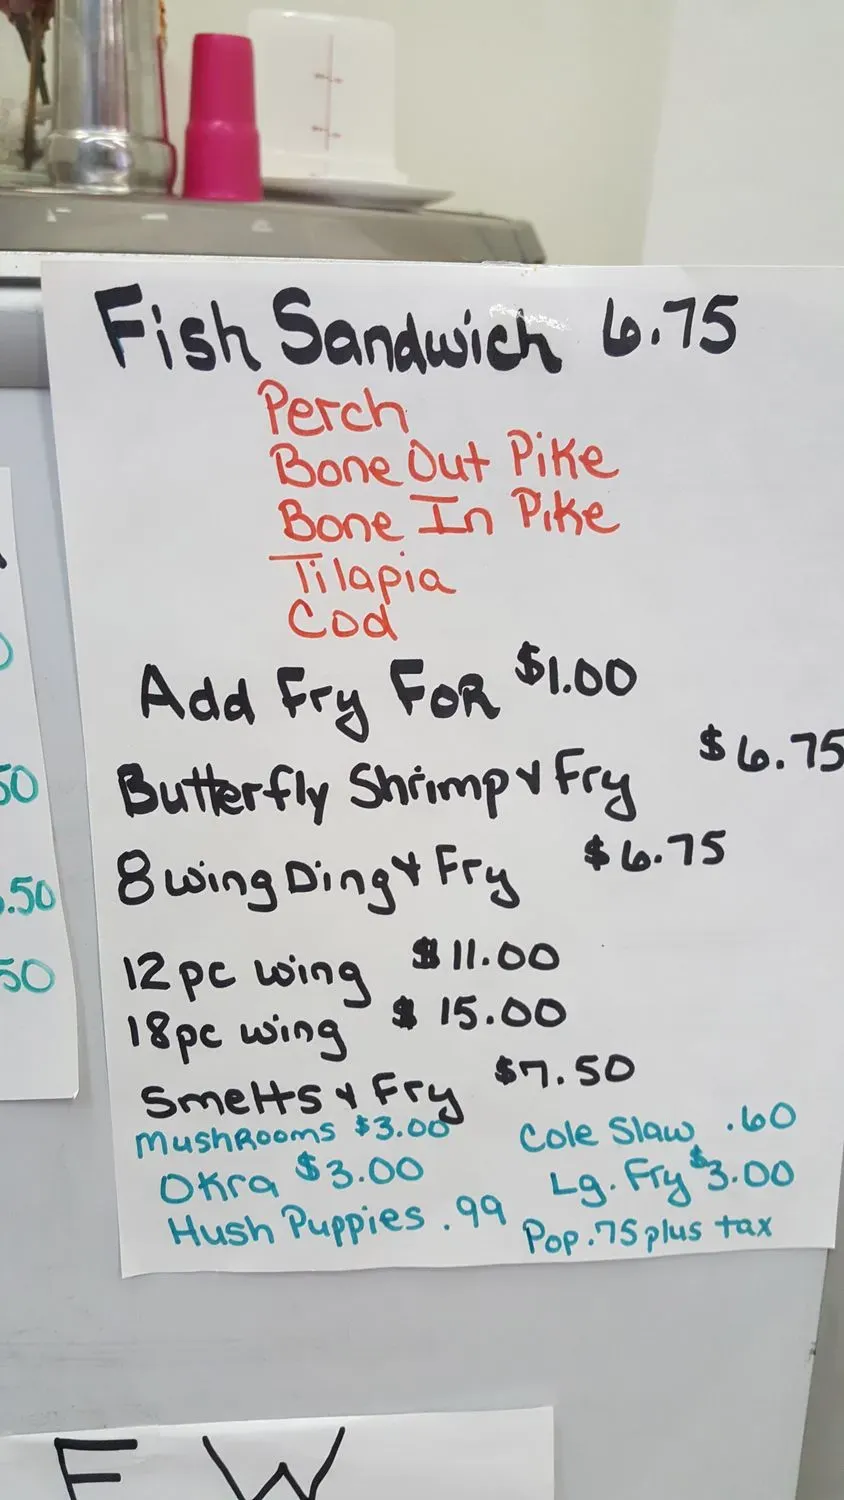 Fish Sandwich 6.75
Perch
Bone Out Pike
Bone In Pike
Tilapia
Cod
Add Fry FOR $1.00
Butterfly Shrimp & Fry $6.75
8 wing Ding & Fry $6.75
12pc wing $11.00
18pc wing $15.00
Smelts & Fry $7.50
MushRooms $3.00 Cole Slaw .60
OKra $3.00 Lg. Fry $3.00
Hush Puppies .99 Pop .75 plus tax
50
.50
50
F W